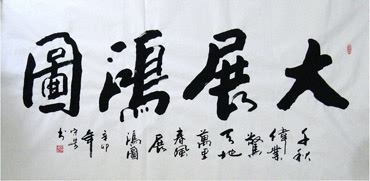 大展鴻圖
千秋
偉業
驚
天地
萬里
春風
展
鴻圖
辛卯
年
书